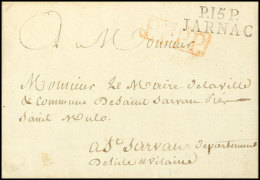 P.15.P.
JARNAC
P.P.P.P.
A Monsieur
Monsieur Le Maire de la ville
& Commune de Saint Servan Pres
Saint Malo.
a St. Servan Departement
De lile & vilaine